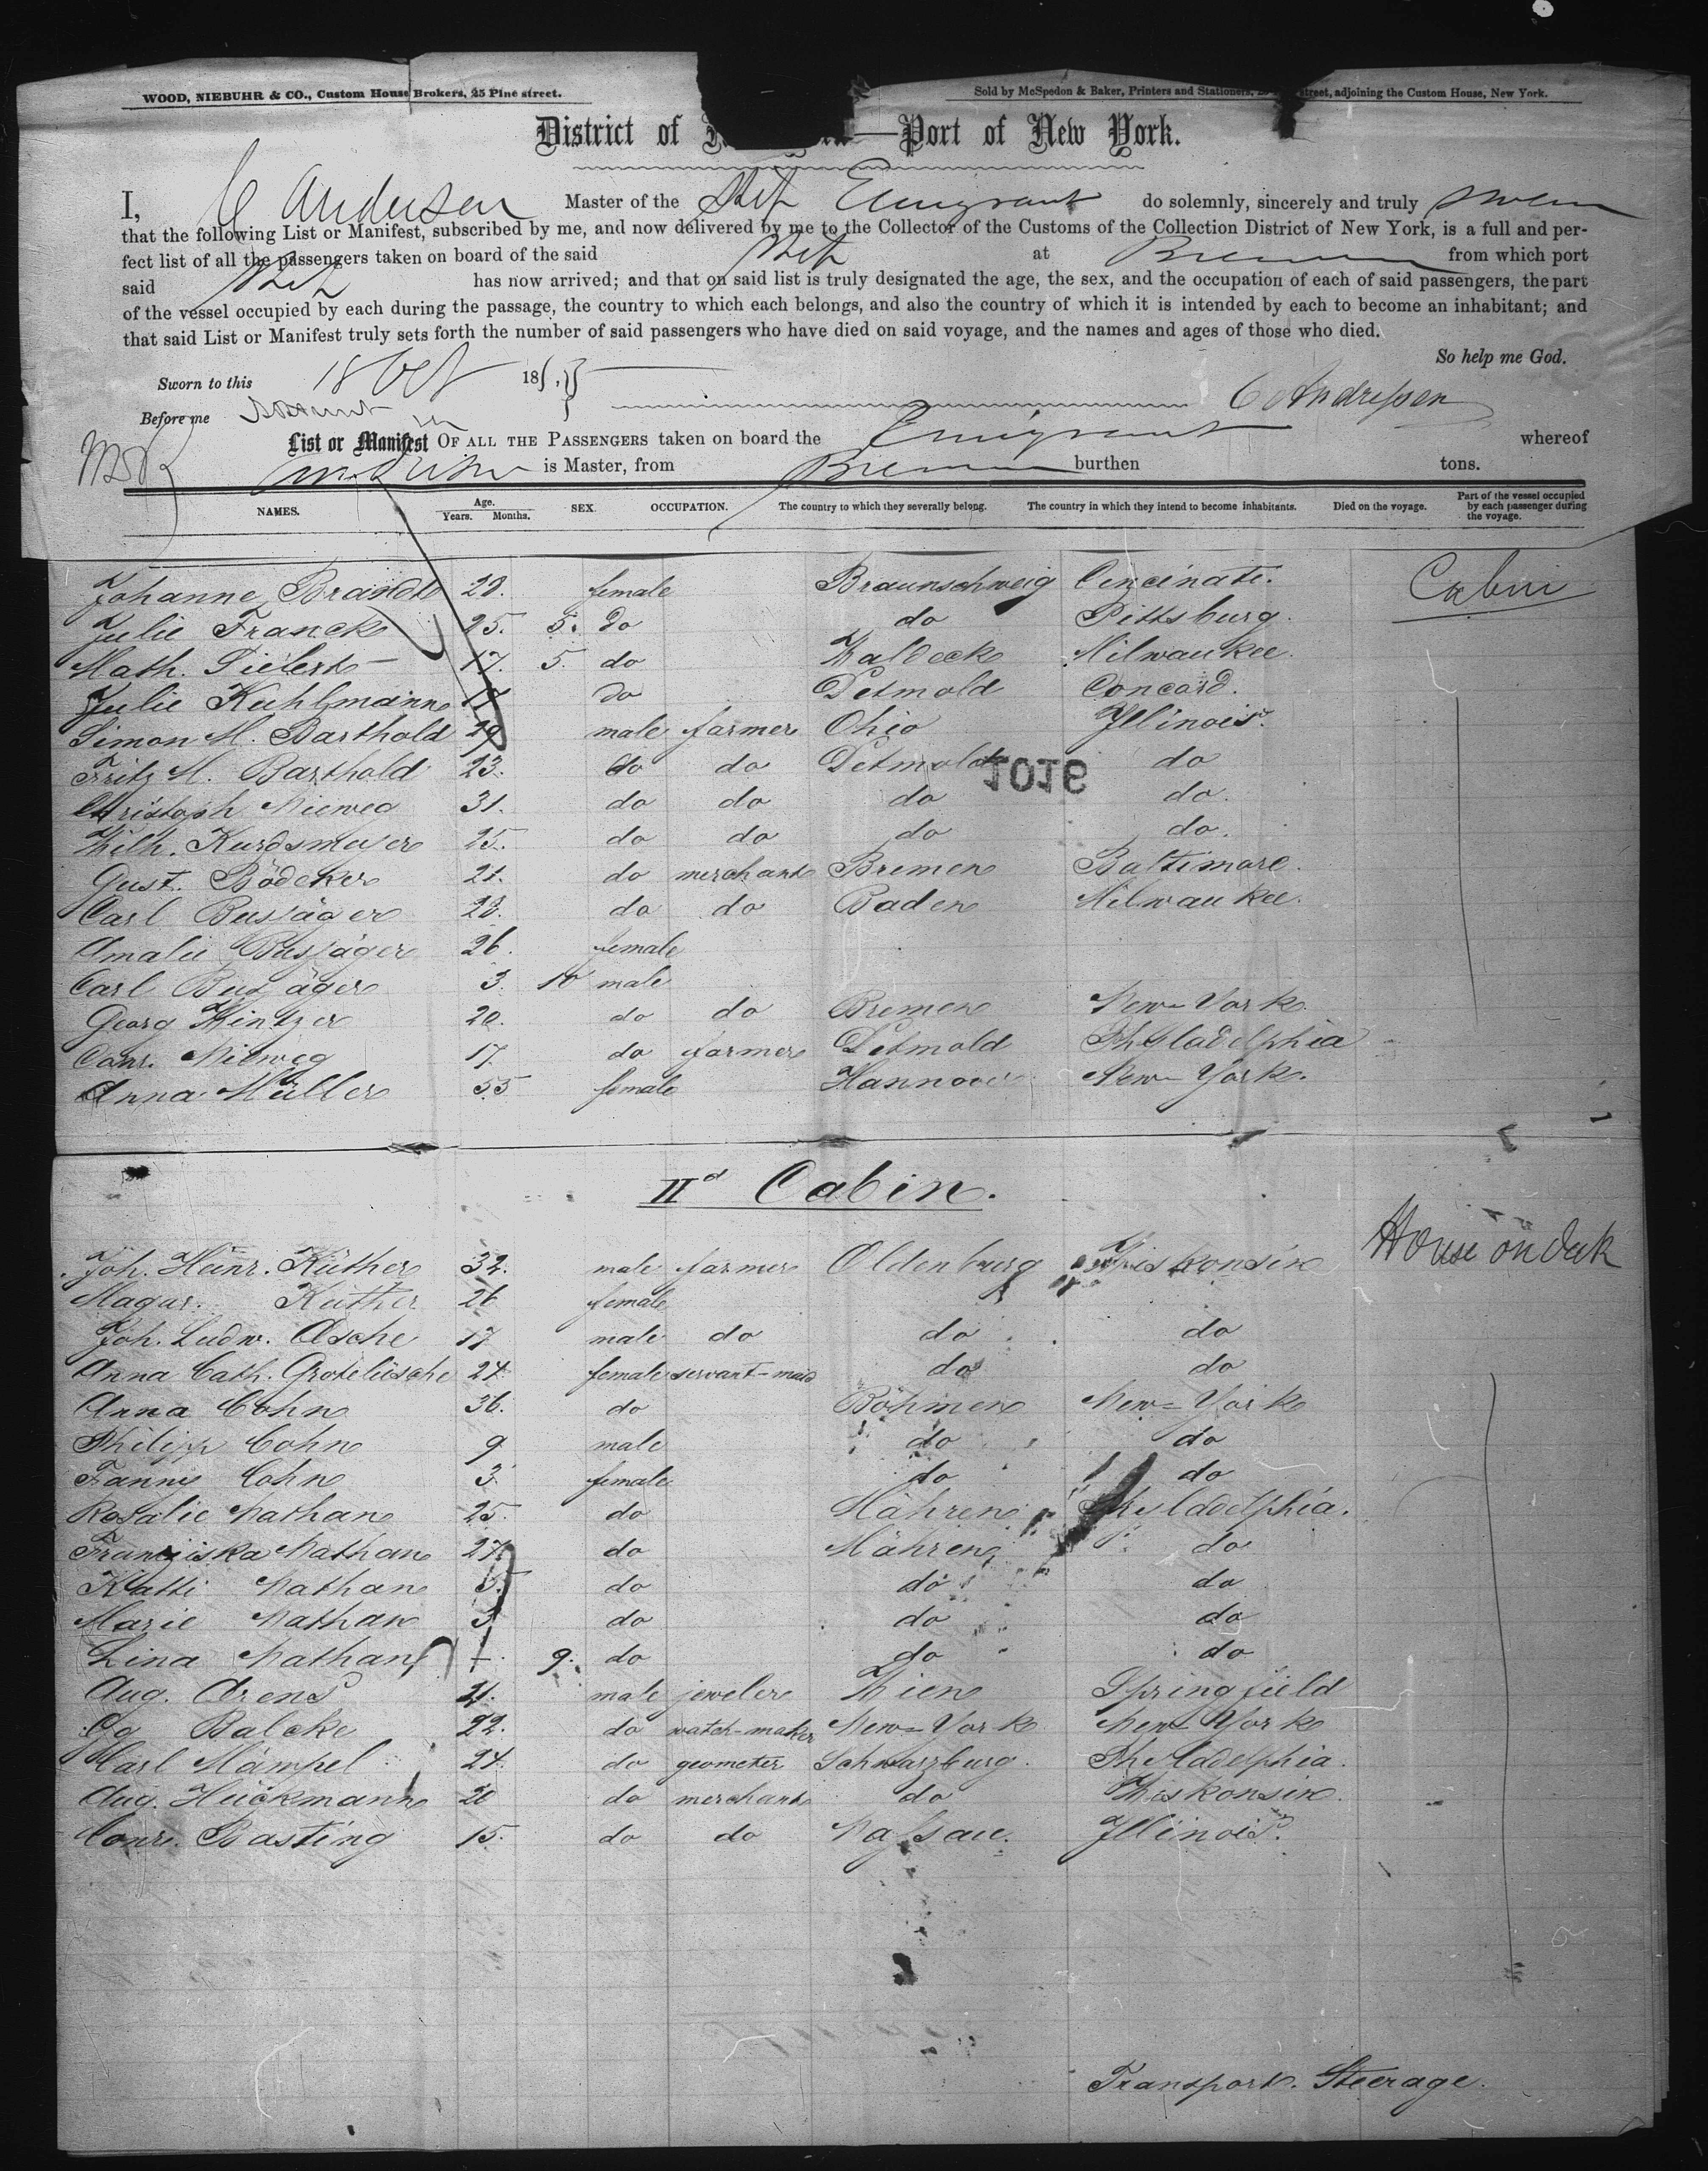 WOOD, NIEBUHR & CO., Custom House Brokers, 25 Pine street. Sold by McSpedon & Baker, Printers and Stationers, street, adjoining the Custom House, New York.
District of Port of New York.
I, C Andersen Master of the Ship Emigrant do solemnly, sincerely and truly swear
that the following List or Manifest, subscribed by me, and now delivered by me to the Collector of the Customs of the Collection District of New York, is a full and per-
fect list of all the passengers taken on board of the said Ship at Bremen from which port
said Ship has now arrived; and that on said list is truly designated the age, the sex, and the occupation of each of said passengers, the part
of the vessel occupied by each during the passage, the country to which each belongs, and also the country of which it is intended by each to become an inhabitant; and
that said List or Manifest truly sets forth the number of said passengers who have died on said voyage, and the names and ages of those who died.
So help me God.
Sworn to this 18 Oct 185
Before me
List or Manifest OF ALL THE PASSENGERS taken on board the Emigrant whereof
is Master, from Bremen burthen tons.
NAMES. Age. Years. Months. SEX. OCCUPATION. The country to which they severally belong. The country in which they intend to become inhabitants. Died on the voyage. Part of the vessel occupied by each passenger during the voyage.
Johanne Brandt 20. female Braunschweig Cincinati. Cabin
Julie Franck 25. 5. do do Pittsburg.
Math. Sielert 17. 5. do Waldeck Milwaukee.
Julie Kuhlmann do Detmold Concord.
Simon H. Barthold 29 male farmer Ohio Illinois.
Fritz H. Barthold 23. do do Detmold do
1016
Christoph Nieweg 31. do do do do.
Wilh. Kurdsmeyer 25. do do do do.
Gust. Bödeker 21. do merchant Bremen Baltimore.
Carl Busjäger 28. do do Baden Milwaukee.
Amalie Busjäger 26. female
Carl Busjäger 3. 10 male
Georg Wintzer 20. do do Bremen New-York.
Conr. Nieweg 17. do farmer Detmold Phyladelphia
Anna Müller 55 female Hannover New-York.
IId Cabin.
Joh. Heinr. Küther 32. male farmer Oldenburg Wiskonsin House on deck
Magar. Küther 26 female
Joh. Ludw. Asche 17 male do do do
Anna Cath. Grotelüsche 24. female servant-maid do do
Anna Cohn 36. do Böhmen New-York
Philipp Cohn 9 male do do
Fanny Cohn 3. female do do
Rosalie Nathan 25. do Mähren Phyladelphia.
Franziska Nathan 27. do Mähren do
Katti Nathan 5. do do do
Marie Nathan 3 do do do
Lina Nathan 9. do do do
Aug. Arens 21. male jeweler Wien Springfield
Gg Balcke 22. do watch-maker New-York New-York
Karl Mämpel 24. do geometer Schwarzburg. Phyladelphia.
Aug. Hückmann 20 do merchant do Wiskonsin.
Conr. Basting 15. do do Nassau. Illinois.
Transport. Steerage.